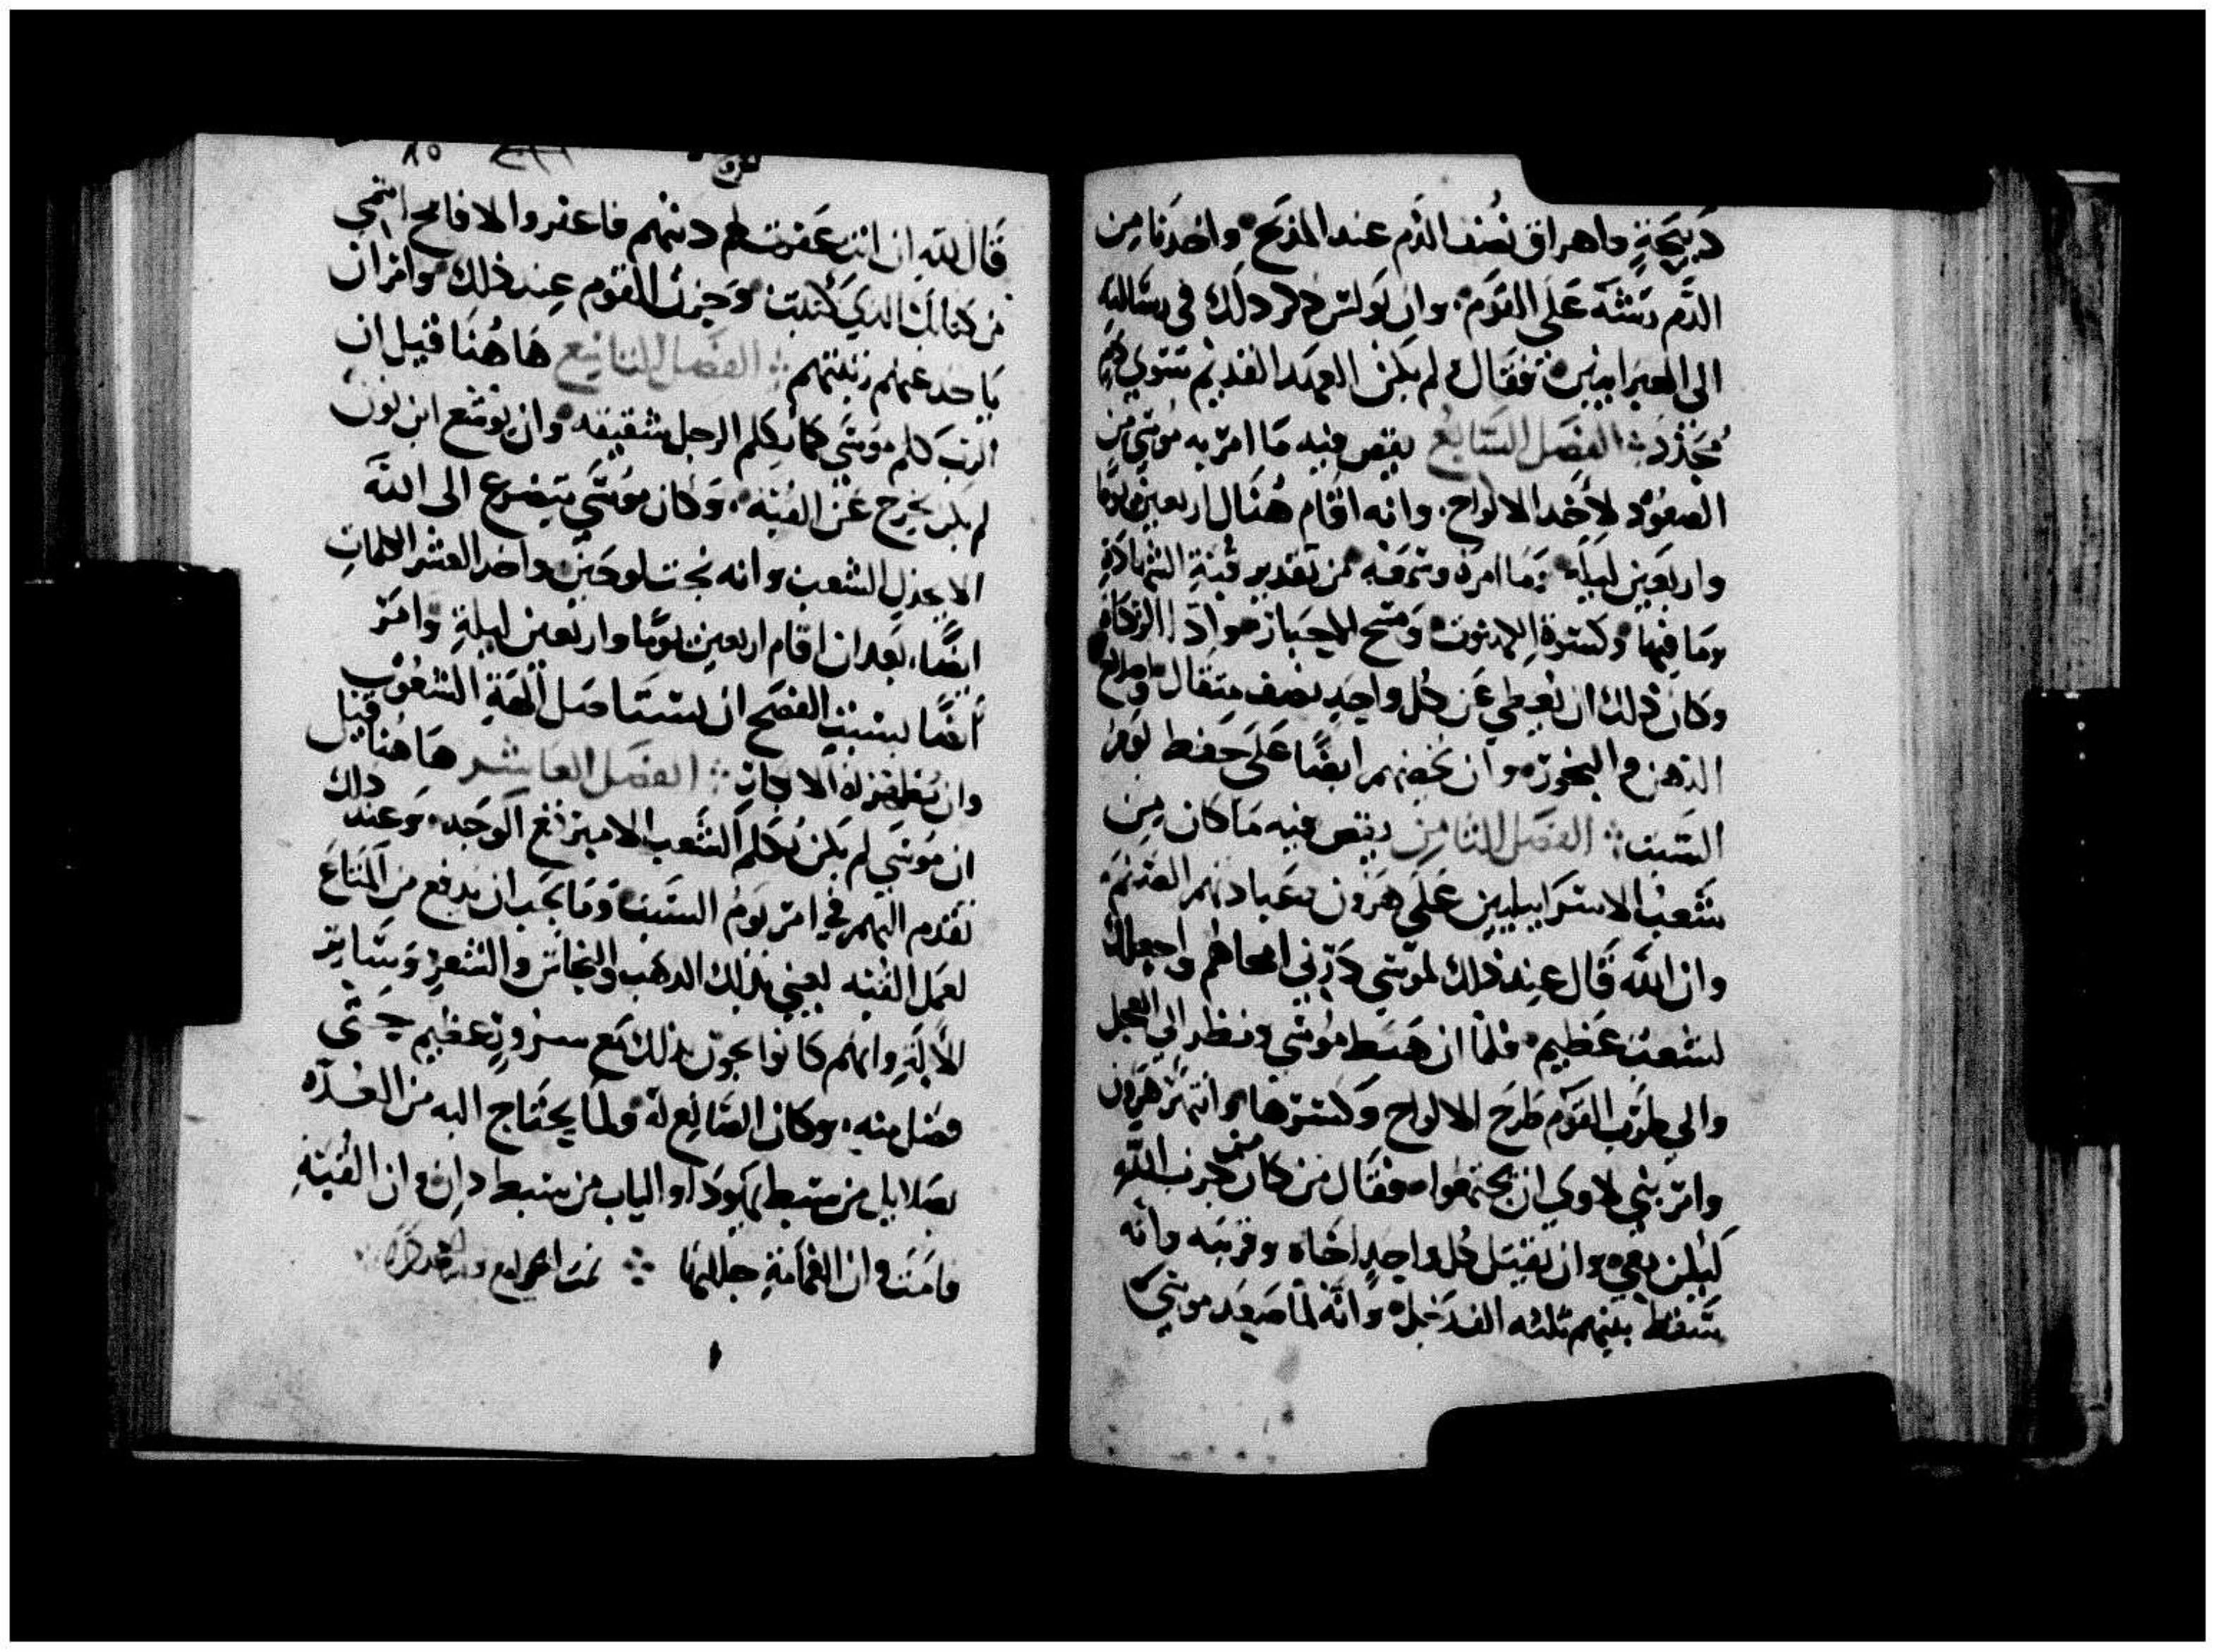 دبيحة واهراق نصف الدم عند المذبح واخد من
الدم رشه على القوم وان بولس دكر دلك في رسالته
الى العبرانيين فقال لم يكن العهد القديم
الفصل السابع يقص فيه ما امر به موسى من
الصعود لاخد الالواح وانه اقام هناك اربعين يوما
واربعين ليله وما امره من تقدير قبة الشهادة
وما فيها وكسوة الكهنوت ومسح
وكان ذلك ان يعطي عن كل واحد نصف متقال
الدهن والبخور وان يحضهم ايضا على حفظ يوم
السبت الفصل الثامن يقص فيه ما كان من
شعب الاسراييليين على هرون بعبادتهم الصنم
وان الله قال عند ذلك لموسى درني امحاهم واجعلك
لشعب عظيم فلما ان هبط موسى ونظر الى العجل
والى طرب القوم طرح الالواح وكسرها وانتهر هرون
وامر بني لاوي ان يجتمعوا فقال من كان من حزب الله
ليكن معي وان يقتل كل واحد اخاه وقريبه وانه
سقط بينهم تلته الف رجل وانه لما صعد موسى
٨٥
قال لله ان انت غفرت لهم دنبهم فاغفر والا فامح اسمي
من كتابك الدي كتبت وحزن القوم عند ذلك وامر ان
ياخد عنهم زينتهم الفصل التاسع هاهنا قيل ان
الرب كلم موسى كما يكلم الرجل شقيقه وان يوشع ابن نون
لم يكن يخرج عن القبة وكان موسى يتضرع الى الله
الا يخذل الشعب وانه نحت لوحين واخد العشر الكلمات
ايضا بعد ان اقام اربعين يوما واربعين ليلة وامر
ايضا بسبب الفصح ان يستاصل الهة الشعوب
وان الفصل العاشر هاهنا قيل
ان موسى لم يكن يكلم الشعب الا مبرقع الوجه وعند دلك
تقدم اليهم في امر يوم السبت وما يجب ان يدفع من المتاع
لعمل القبه يعني بذلك الدهب والنحاس والشعر وساير
الالة وانهم كانوا يجون بذلك مع سرور عظيم حتى
فضل منه وكان الصانع له ولما يحتاج اليه من العده
بصلاييل من سبط يهودا والياب من سبط دان وان القبة
قامت وان الغمامة جللتها تمت